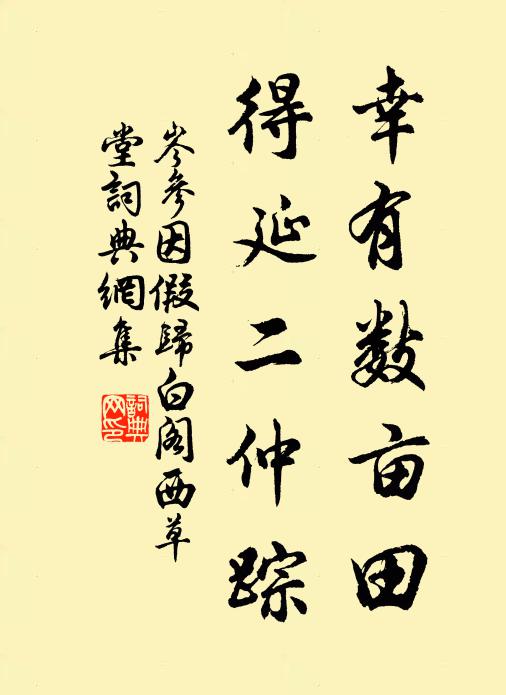 幸有数亩田
得延二仲踪
岑参因假歸白阁西草
堂詞典網集
詞典
网印